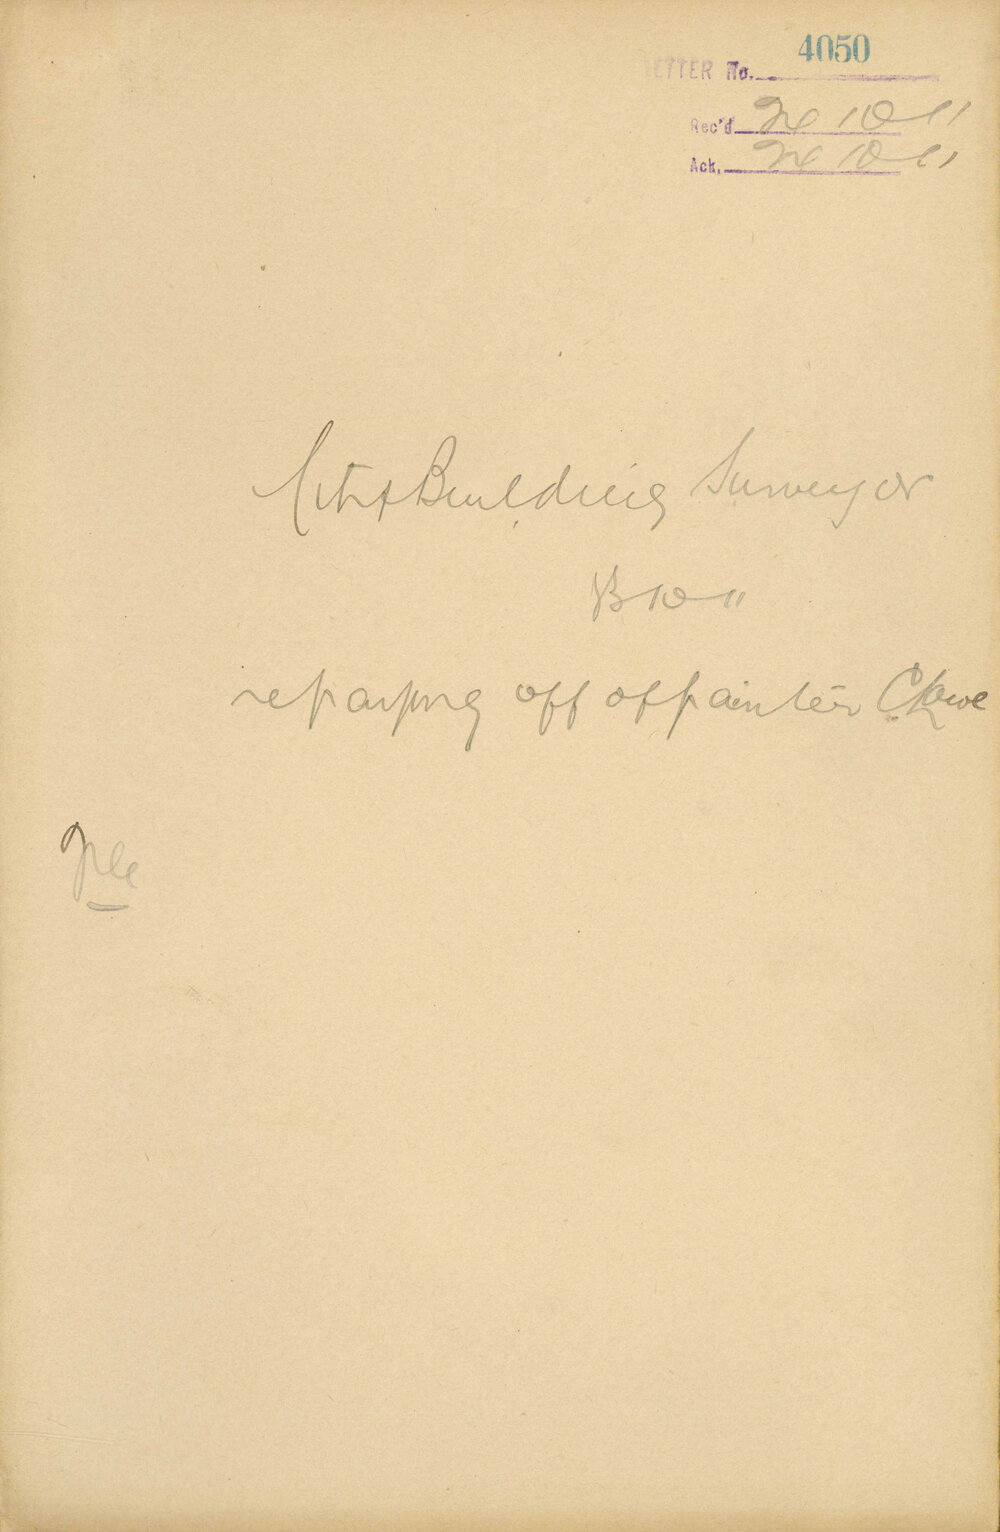 4050
LETTER No.
Rec'd 24 10 11
Ack. 24 10 11
City Building Surveyor
10 11
re paying off of painter C Rowe